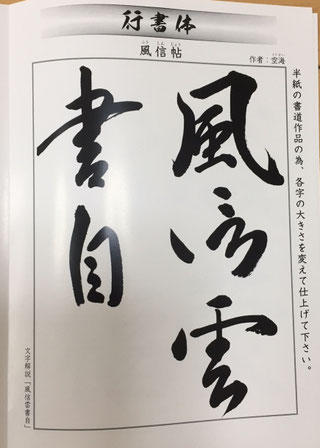 行書体
風信帖
ふう しん じょう
作者:空海
くうかい
半紙の書道作品の為、各字の大きさを変えて仕上げて下さい。
風信雲
書自
文字解説「風信雲書自」